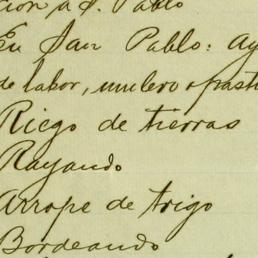 cion a S. Pablo
En San Pablo: Ay
de labor, unclero o past
Riego de tierras
Rayando
Arrope de trigo
Bordeando